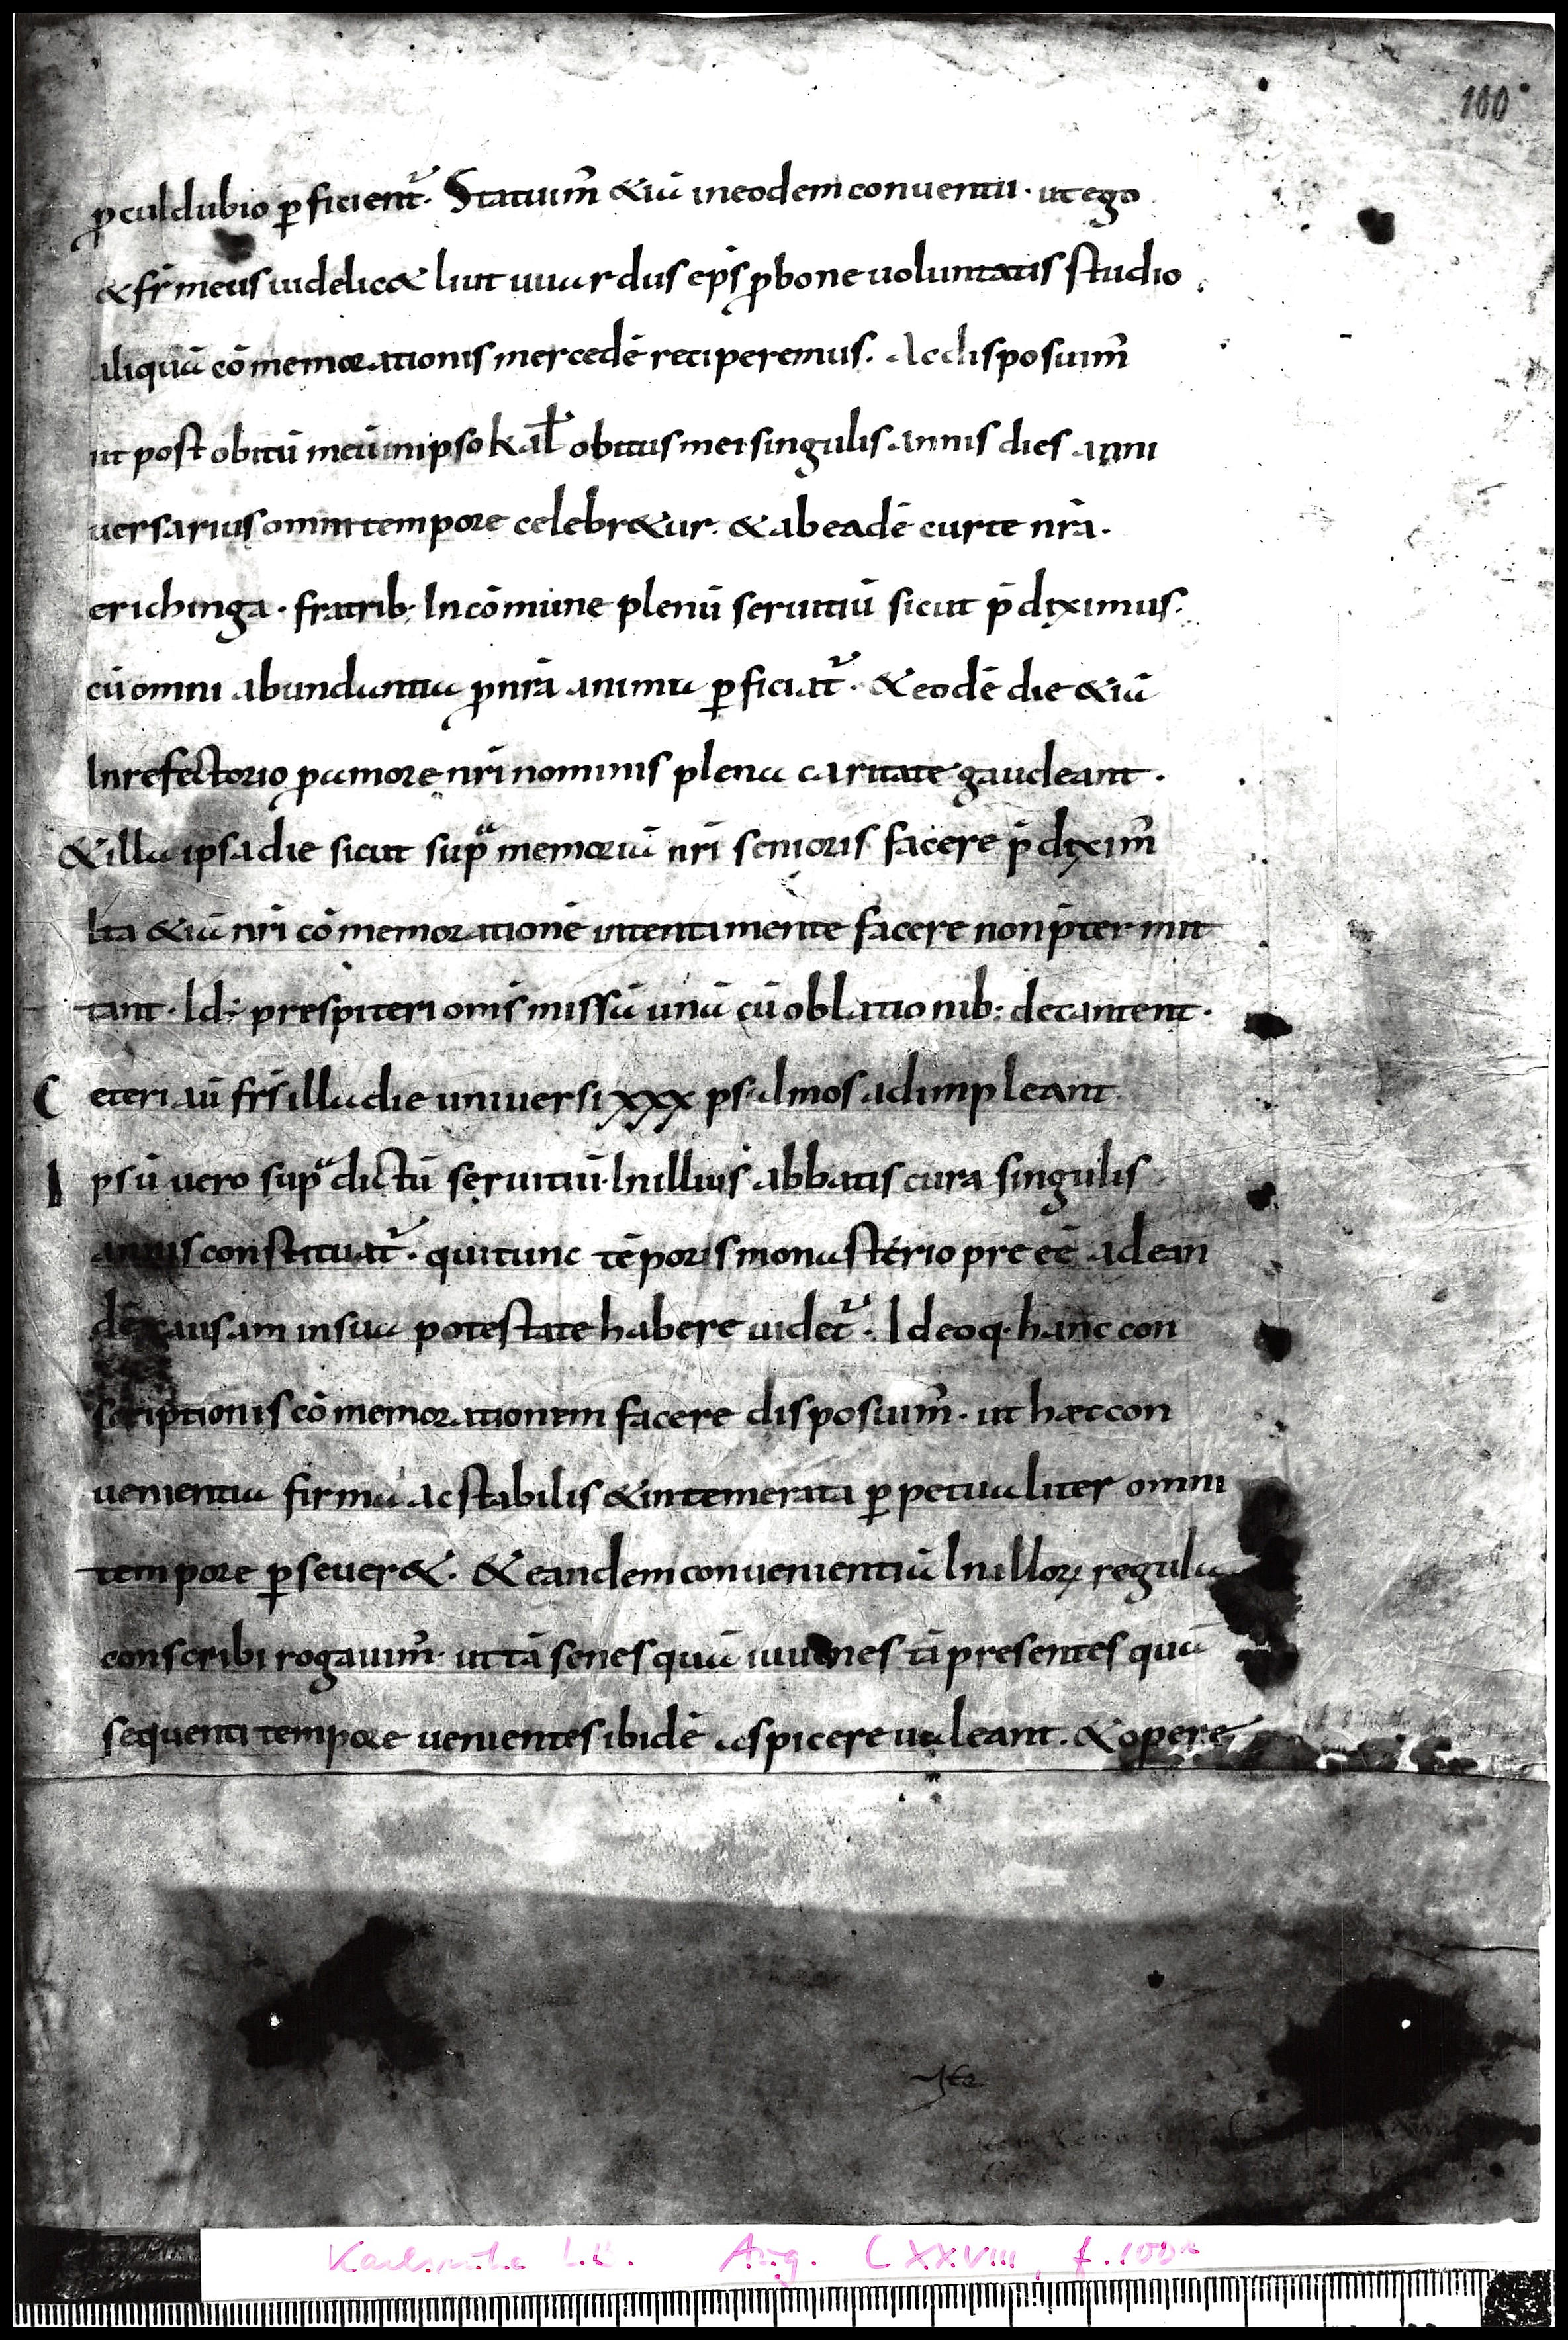 100
ꝓculdubio ꝑficient᷑. Statuim̃ &iā ineodem conuentu. ut ego
& fr̄ meus uidelic& liutuuardus ep̄s ꝓbone uoluntatis studio
aliquā cōmemorationis mercedē reciperemus. Ac disposuim̃
ut post obitū meū inipso kal̄ obitus mei singulis annis dies anni
uersarius omni tempore celebr&ur. & ab eadē curte nr̄a.
erichinga. fratrib; Incōmune plenū seruitiū sicut p̄diximus.
cū omni abundantia ꝓ nr̄a anima ꝑficiat᷑. & eodē die &iā
In refectorio ꝓ amore nr̄i nominis plena caritate gaudeant.
& illa ipsa die sicut supᵃ memoriā nr̄i senioris facere p̄dixim̃
Ita &iā nr̄i cōmemorationē intenti mente facere non p̄termit
tant. Id÷ prespiteri om̄s missā unā cū oblationib; decantent.
Ceteri aū fr̄s illa die uniuersi xxx psalmos adimpleant.
Ipsū vero supᵃdictū seruitiū. In illius abbatis cura singulis
annis constituat᷑. qui tunc tēporis monasterio preeē adean
dē causam in sua potestate habere uidet᷑. Ideoq· hanc con
scriptionis cōmemorationem facere disposuim̃. ut hæc con
uenientia firma ac stabilis & intemerata ꝑpetualiter omni
tempore ꝑseuer&. & eandem conuenientiā In illoꝝ regula
conscribi rogauim̃. ut tā senes quā iuuenes tā presentes quā
sequenti tempore uenientes ibidē aspicere ualeant. & opere
Karlsruhe L.B. Aug. CXXVIII, f. 100ʳ